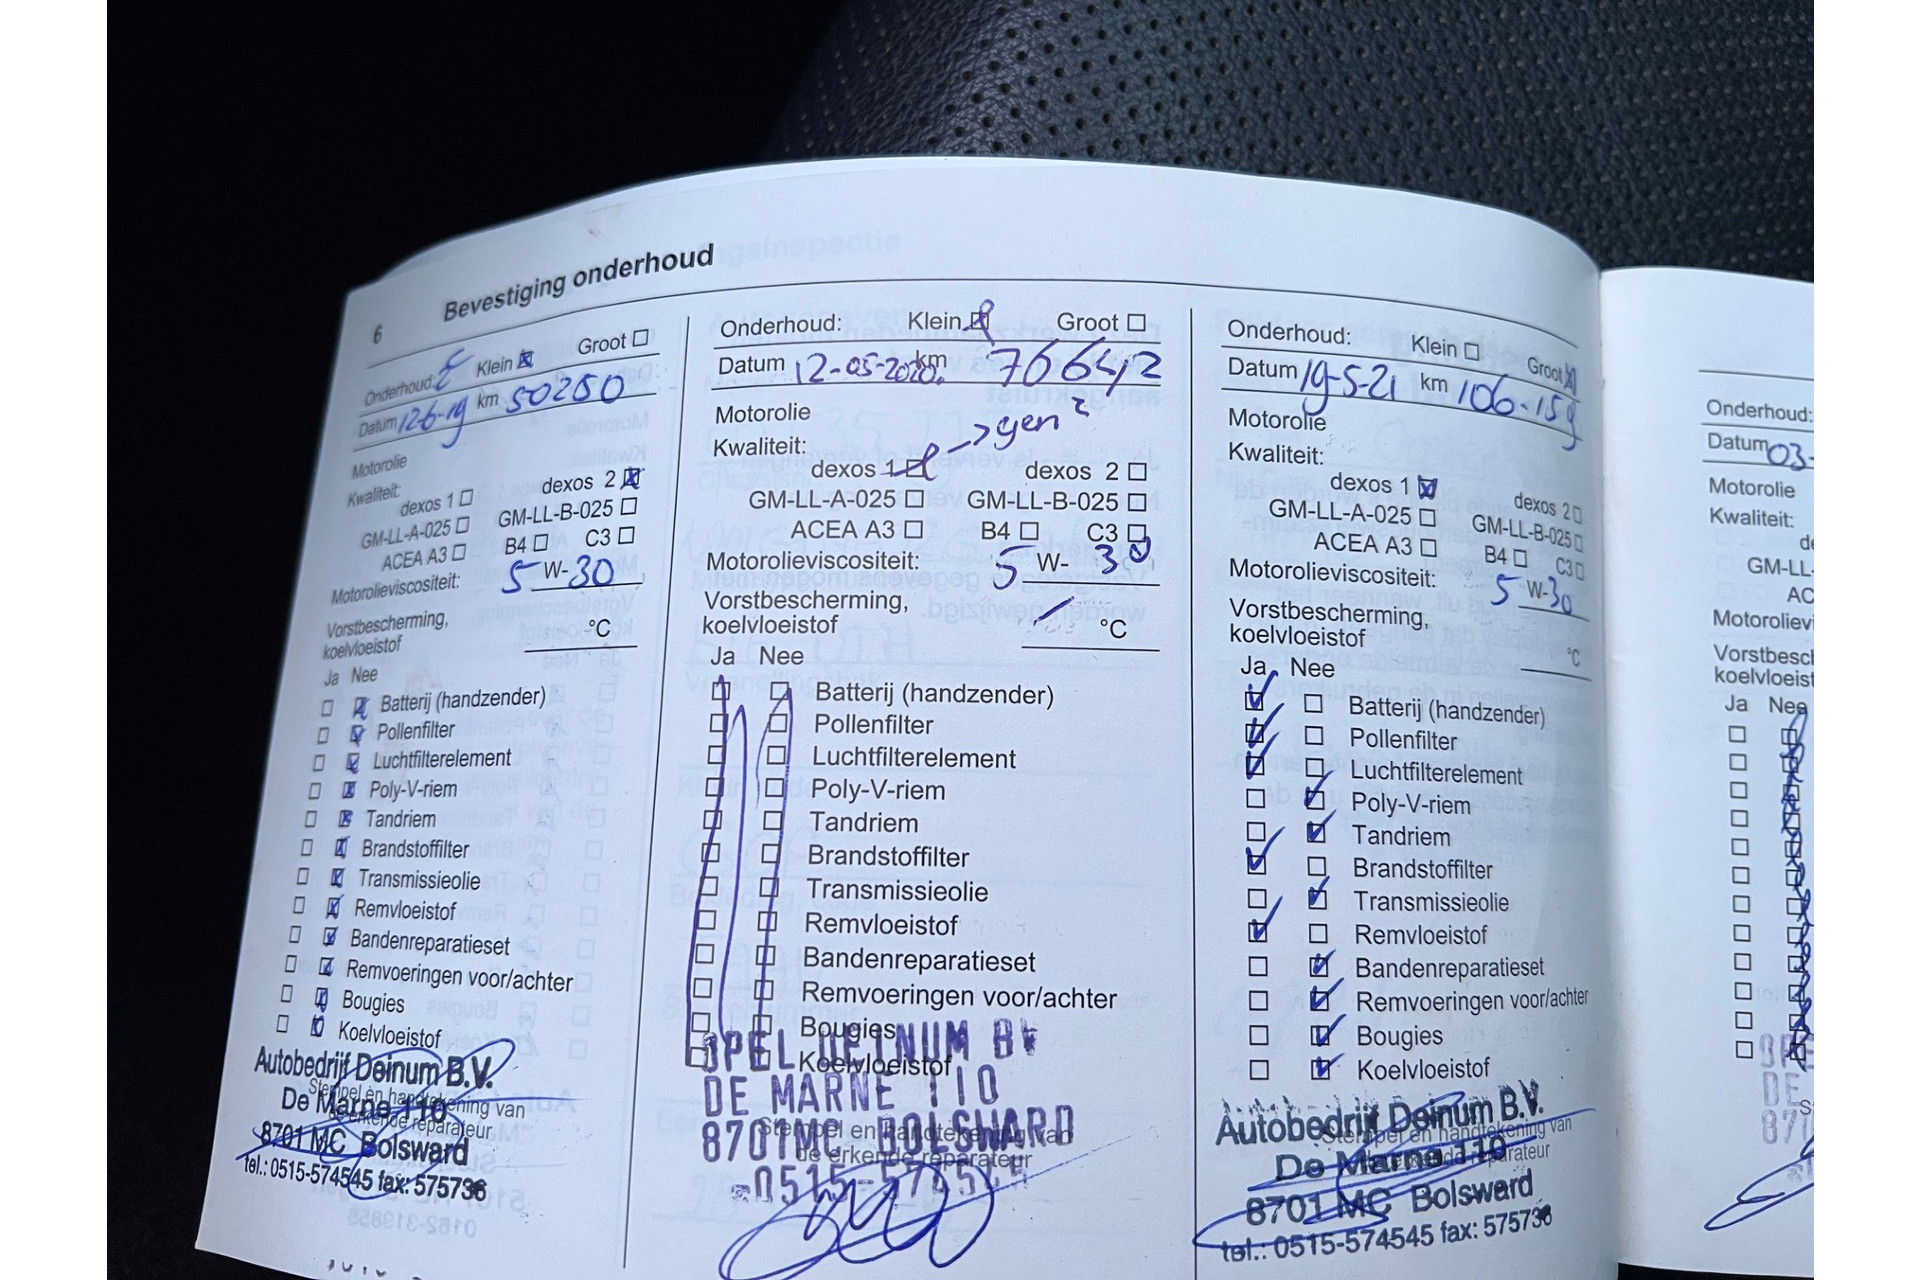 6 Bevestiging onderhoud
Onderhoud: Klein Groot
Datum 12-6-19 km 50250
Motorolie
Kwaliteit:
dexos 1 dexos 2
GM-LL-A-025 GM-LL-B-025
ACEA A3 B4 C3
Motorolieviscositeit: 5 W-30
Vorstbescherming,
koelvloeistof °C
Ja Nee
Batterij (handzender)
Pollenfilter
Luchtfilterelement
Poly-V-riem
Tandriem
Brandstoffilter
Transmissieolie
Remvloeistof
Bandenreparatieset
Remvoeringen voor/achter
Bougies
Koelvloeistof
Autobedrijf Deinum B.V.
Stempel en handtekening van
De Marne 110
de erkende reparateur
8701 MC Bolsward
tel.: 0515-574545 fax: 575736
Onderhoud: Klein Groot
Datum 12-05-2020. km 76642
Motorolie
Kwaliteit: -> gen 2
dexos 1 dexos 2
GM-LL-A-025 GM-LL-B-025
ACEA A3 B4 C3
Motorolieviscositeit: 5 W- 30
Vorstbescherming,
koelvloeistof °C
Ja Nee
Batterij (handzender)
Pollenfilter
Luchtfilterelement
Poly-V-riem
Tandriem
Brandstoffilter
Transmissieolie
Remvloeistof
Bandenreparatieset
Remvoeringen voor/achter
Bougies
OPEL DEINUM BV
Koelvloeistof
DE MARNE 110
Stempel en handtekening van
8701 MC BOLSWARD
de erkende reparateur
Onderhoud: Klein Groot
Datum 19-5-21 km 106.159
Motorolie
Kwaliteit:
dexos 1 dexos 2
GM-LL-A-025 GM-LL-B-025
ACEA A3 B4 C3
Motorolieviscositeit: 5 W-30
Vorstbescherming,
koelvloeistof °C
Ja Nee
Batterij (handzender)
Pollenfilter
Luchtfilterelement
Poly-V-riem
Tandriem
Brandstoffilter
Transmissieolie
Remvloeistof
Bandenreparatieset
Remvoeringen voor/achter
Bougies
Koelvloeistof
Autobedrijf Deinum B.V.
Stempel en handtekening van
De Marne 110
de erkende reparateur
8701 MC Bolsward
tel.: 0515-574545 fax: 575736
Onderhoud:
Datum 03-
Motorolie
Kwaliteit:
de
GM-LL-
AC
Motorolievi
Vorstbesch
koelvloeist
Ja Nee
OPE
DE
870